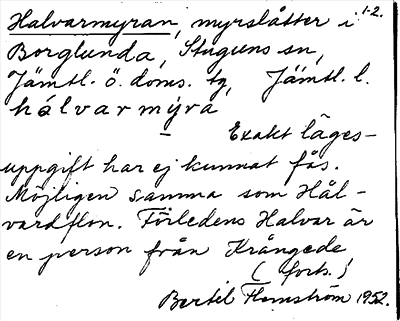 Halvarmyran, myrslåtter i 1-2.
Borglunda, Stuguns sn,
Jämtl. ö. doms. tg, Jämtl. l.
hálvarmýra
Exakt läges-
uppgift har ej kunnat fås.
Möjligen samma som Hål-
vardflon. Förledens Halvar är
en person från Krångede
(forts.)
Bertil Flemström 1952.